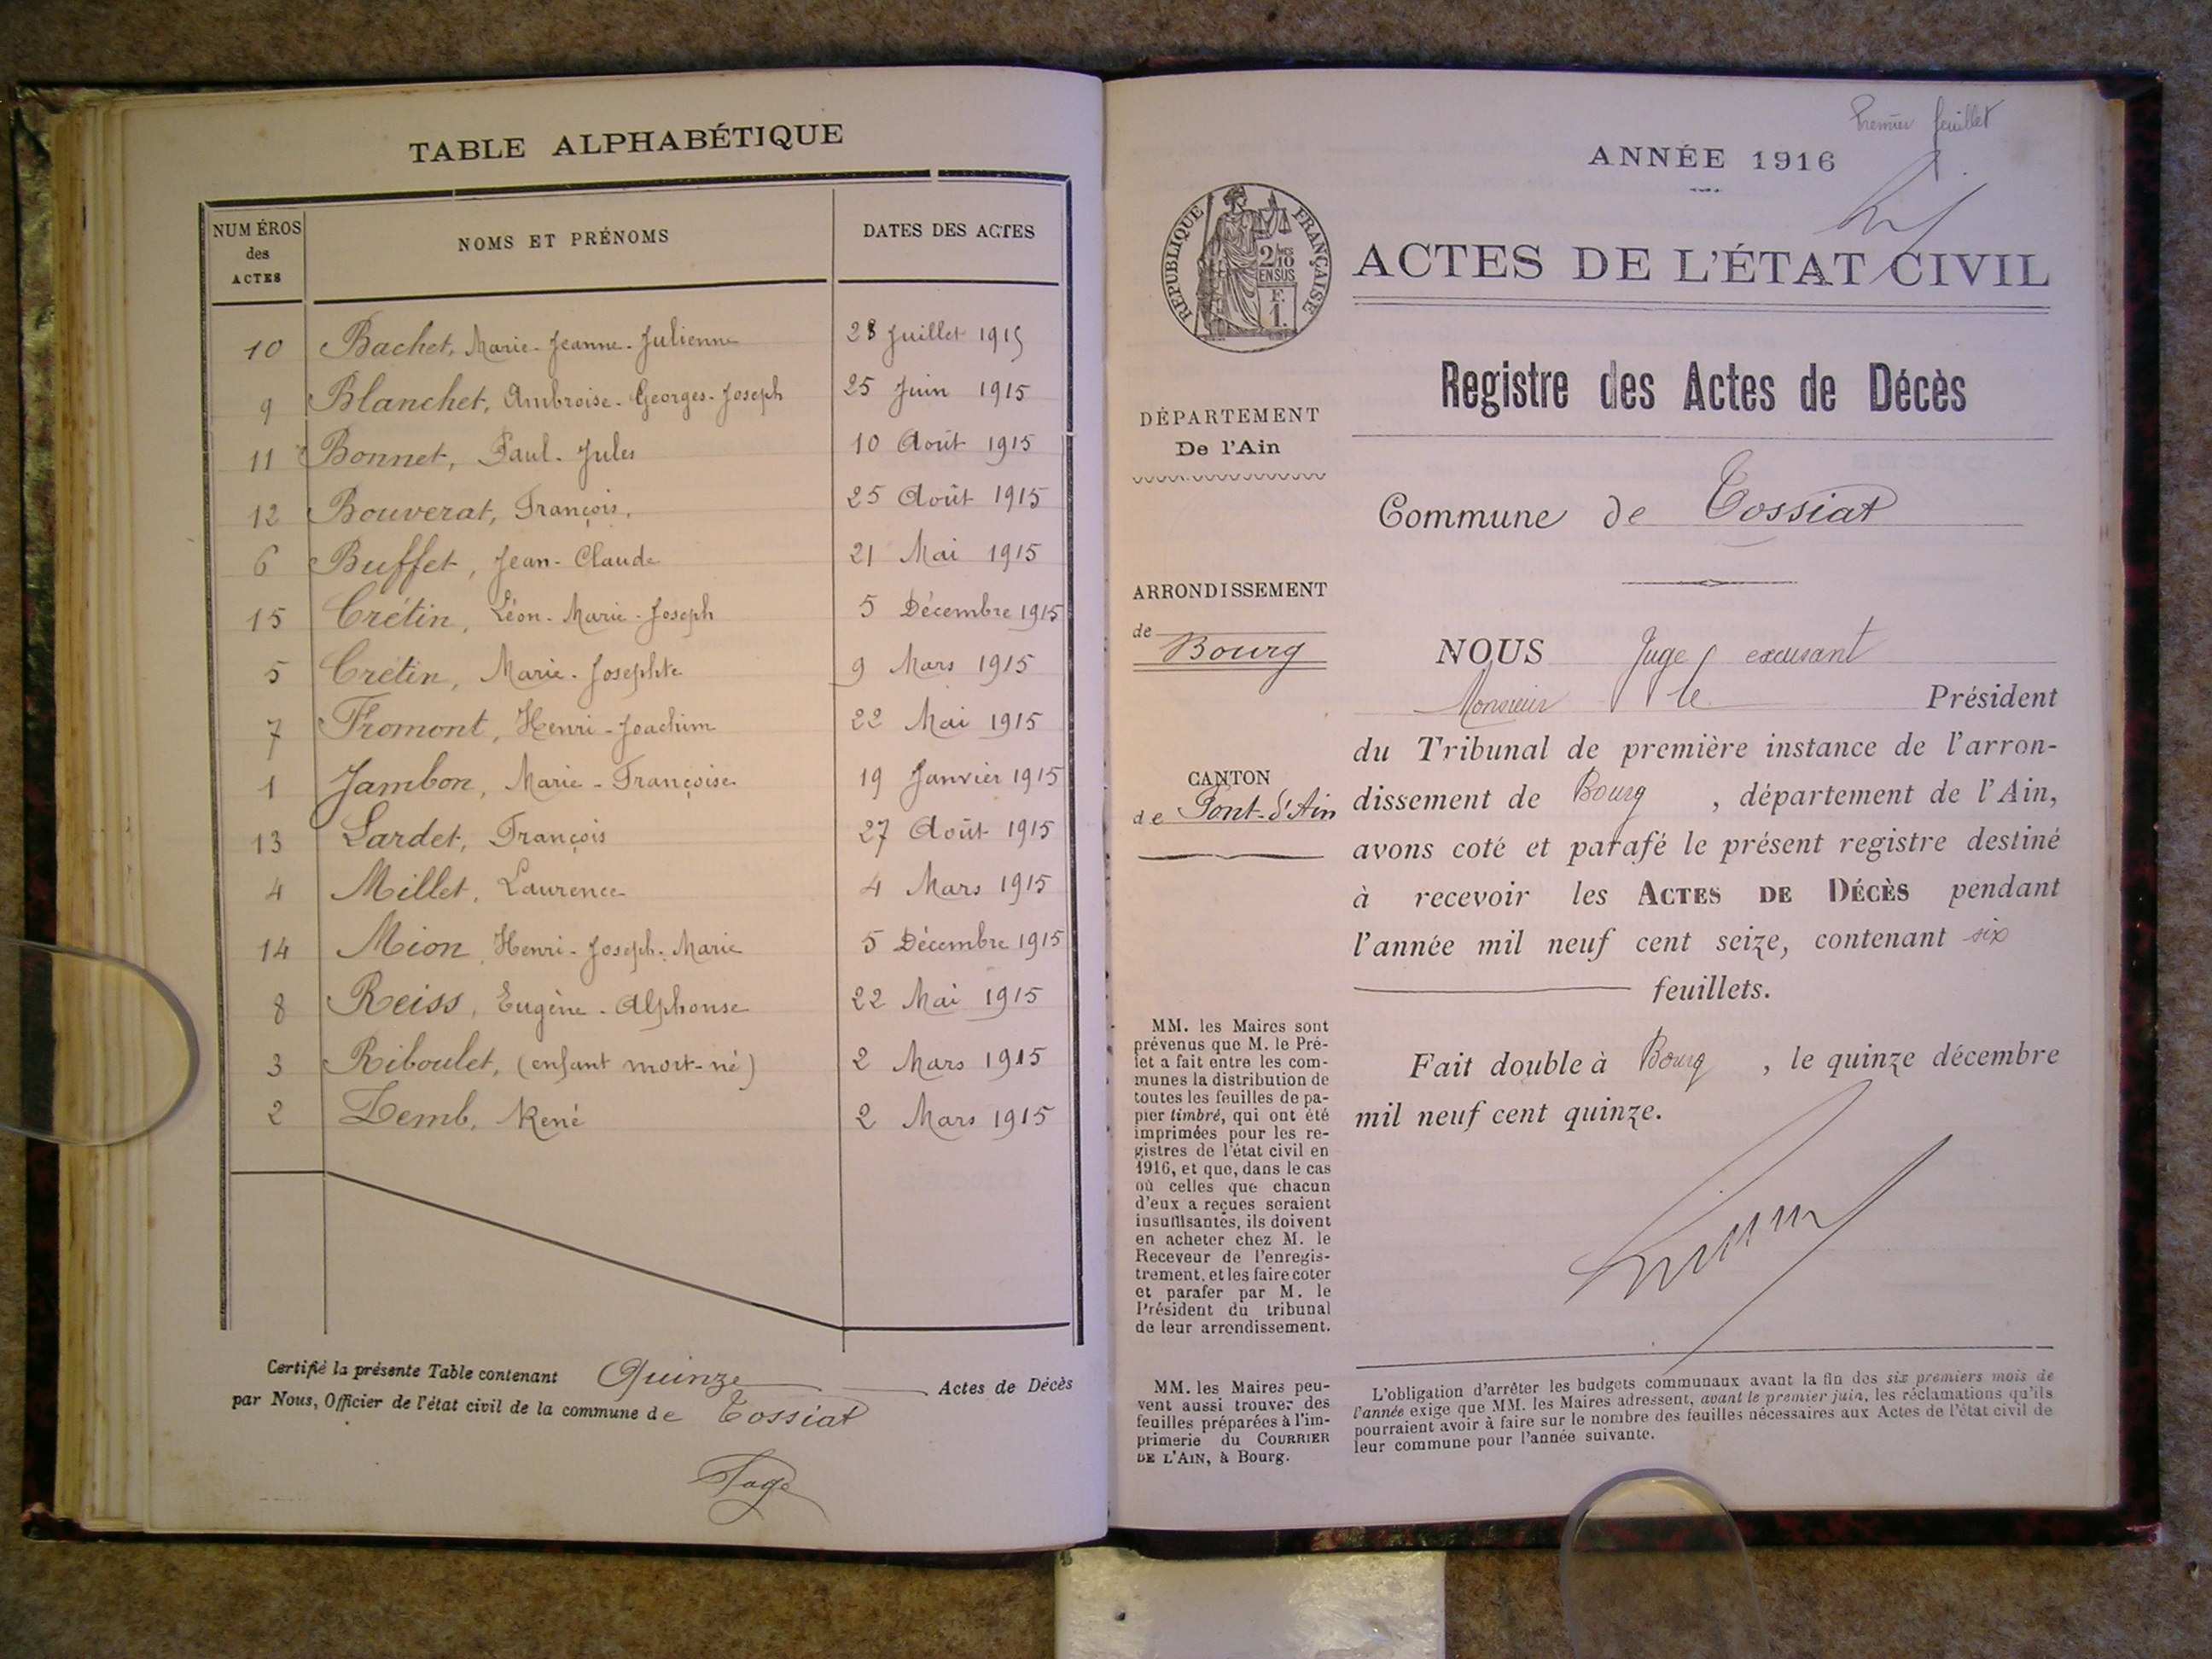 TABLE ALPHABÉTIQUE
NUMÉROS des ACTES NOMS ET PRÉNOMS DATES DES ACTES
10 Bachet, Marie-Jeanne-Julienne 28 Juillet 1915
9 Blanchet, Ambroise-Georges-Joseph 25 Juin 1915
11 Bonnet, Paul-Jules 10 Août 1915
12 Bouverat, François, 25 Août 1915
6 Buffet, Jean-Claude 21 Mai 1915
15 Crétin, Léon-Marie-Joseph 5 Décembre 1915
5 Crétin, Marie-Josephte 9 Mars 1915
7 Fromont, Henri-Joachim 22 Mai 1915
1 Jambon, Marie-Françoise 19 Janvier 1915
13 Lardet, François 27 Août 1915
4 Millet, Laurence 4 Mars 1915
14 Mion, Henri-Joseph-Marie 5 Décembre 1915
8 Reiss, Eugène-Alphonse 22 Mai 1915
3 Riboulet, (enfant mort-né) 2 Mars 1915
2 Zemb, René 2 Mars 1915
Certifié la présente Table contenant Quinze Actes de Décès
par Nous, Officier de l'état civil de la commune de Tossiat
Premier feuillet
ANNÉE 1916
RÉPUBLIQUE FRANÇAISE
2/10 EN SUS
F. 1.
ACTES DE L'ÉTAT CIVIL
Registre des Actes de Décès
DÉPARTEMENT
De l'Ain
Commune de Tossiat
ARRONDISSEMENT
de Bourg
CANTON
de Pont-d'Ain
NOUS Juge excusant
Monsieur le Président
du Tribunal de première instance de l'arron-
dissement de Bourg, département de l'Ain,
avons coté et parafé le présent registre destiné
à recevoir les ACTES DE DÉCÈS pendant
l'année mil neuf cent seize, contenant six
feuillets.
Fait double à Bourg, le quinze décembre
mil neuf cent quinze.
MM. les Maires sont
prévenus que M. le Pré-
fet a fait entre les com-
munes la distribution de
toutes les feuilles de pa-
pier timbré, qui ont été
imprimées pour les re-
gistres de l'état civil en
1916, et que, dans le cas
où celles que chacun
d'eux a reçues seraient
insuffisantes, ils doivent
en acheter chez M. le
Receveur de l'enregis-
trement, et les faire coter
et parafer par M. le
Président du tribunal
de leur arrondissement.
MM. les Maires peu-
vent aussi trouver des
feuilles préparées à l'im-
primerie du COURRIER
DE L'AIN, à Bourg.
L'obligation d'arrêter les budgets communaux avant la fin des six premiers mois de
l'année exige que MM. les Maires adressent, avant le premier juin, les réclamations qu'ils
pourraient avoir à faire sur le nombre des feuilles nécessaires aux Actes de l'état civil de
leur commune pour l'année suivante.